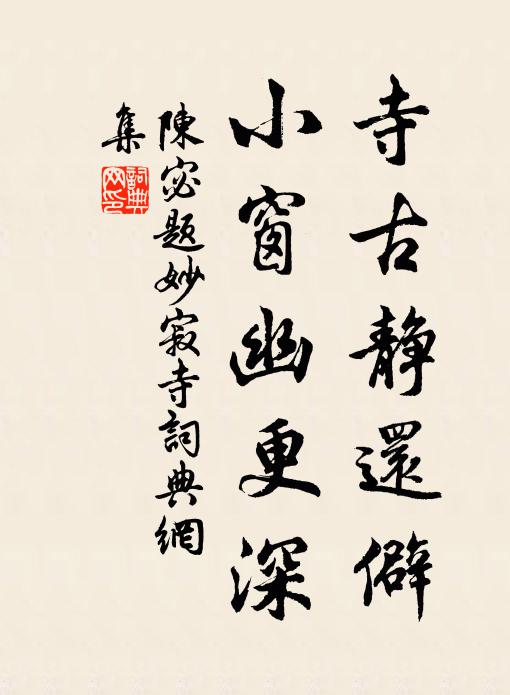 寺古静還僻
小窗幽更深
陳宓題妙寂寺詞典網
集
詞典網印